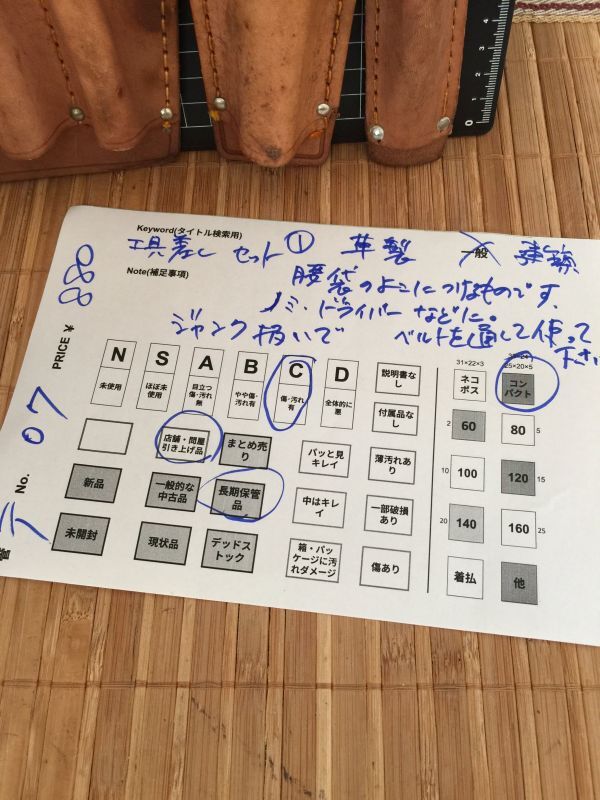 Keyword(タイトル検索用)
工具差し セット ① 革製 一般 建築
Note(補足事項)
腰袋のよこにつけるものです.
ノミ・ドライバーなどに。
ジャンク扱いで ベルトを通して使って下さい
PRICE ¥ 880
No. 07
N 未使用
S ほぼ未使用
A 目立つ傷・汚れ無
B やや傷・汚れ有
C 傷・汚れ有
D 全体的に悪
説明書なし
付属品なし
店舗・問屋引き上げ品
まとめ売り
パッと見キレイ
薄汚れあり
新品
一般的な中古品
長期保管品
中はキレイ
一部破損あり
未開封
現状品
デッドストック
箱・パッケージに汚れダメージ
傷あり
31×22×3
ネコポス
25×20×5
コンパクト
60
80 5
10 100
120 15
20 140
160 25
着払
他
0 1 2 3 4